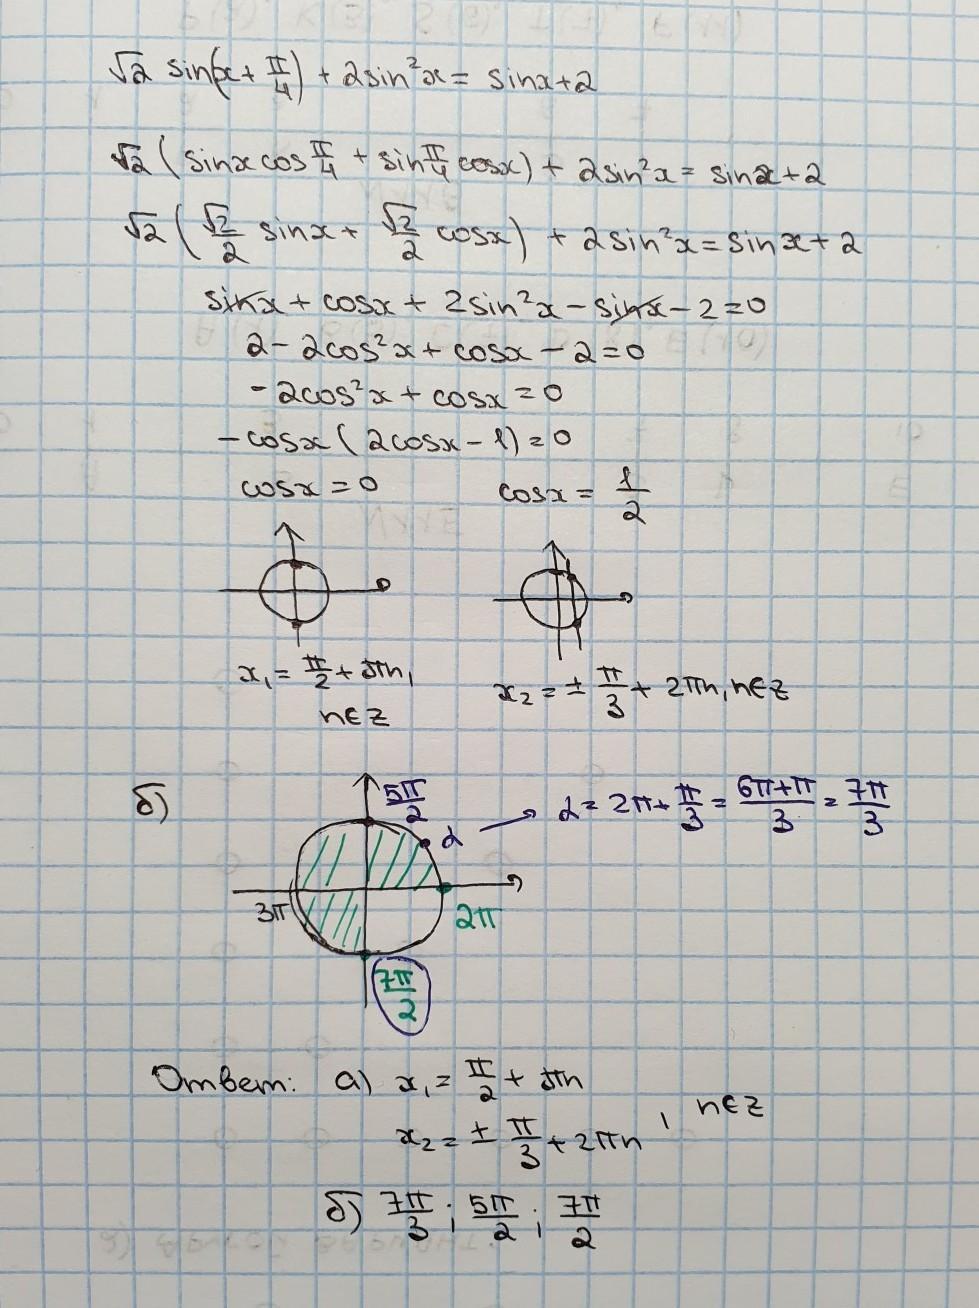 √2 sin(x + π/4) + 2sin²x = sinx + 2
√2 (sinx cos π/4 + sin π/4 cosx) + 2sin²x = sinx + 2
√2 (√2/2 sinx + √2/2 cosx) + 2sin²x = sinx + 2
sinx + cosx + 2sin²x - sinx - 2 = 0
2 - 2cos²x + cosx - 2 = 0
- 2cos²x + cosx = 0
- cosx (2cosx - 1) = 0
cosx = 0 cosx = 1/2
x₁ = π/2 + πn, n∈Z
x₂ = ± π/3 + 2πn, n∈Z
б) 5π/2 α → α = 2π + π/3 = 6π+π/3 = 7π/3
3π 2π
7π/2
Ответ: а) x₁ = π/2 + πn
x₂ = ± π/3 + 2πn , n∈Z
б) 7π/3 ; 5π/2 ; 7π/2